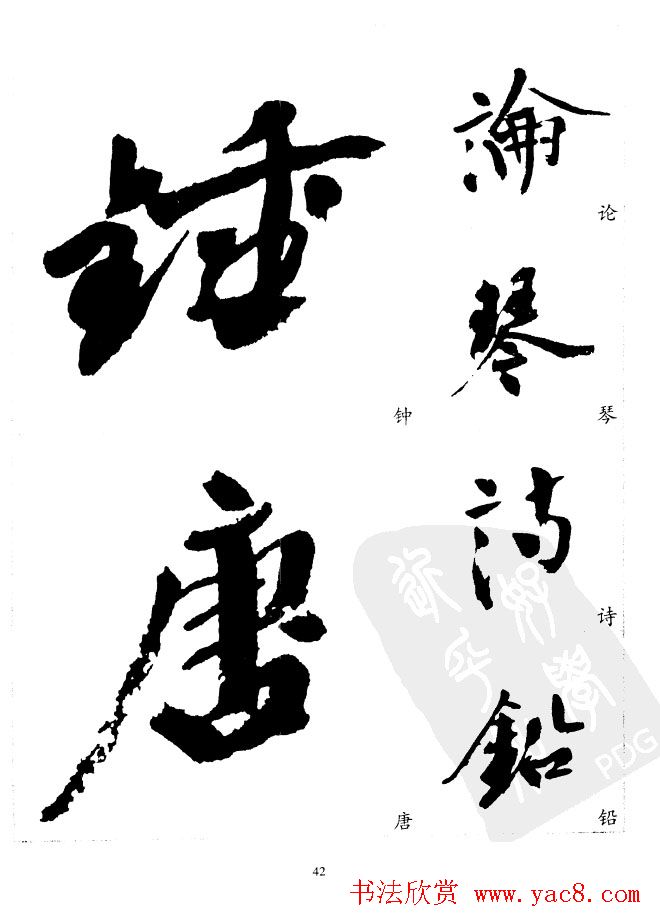 論
论
琴
琴
詩
诗
鉛
铅
鍾
钟
唐
唐
PDG
42
书法欣赏 www.yac8.com